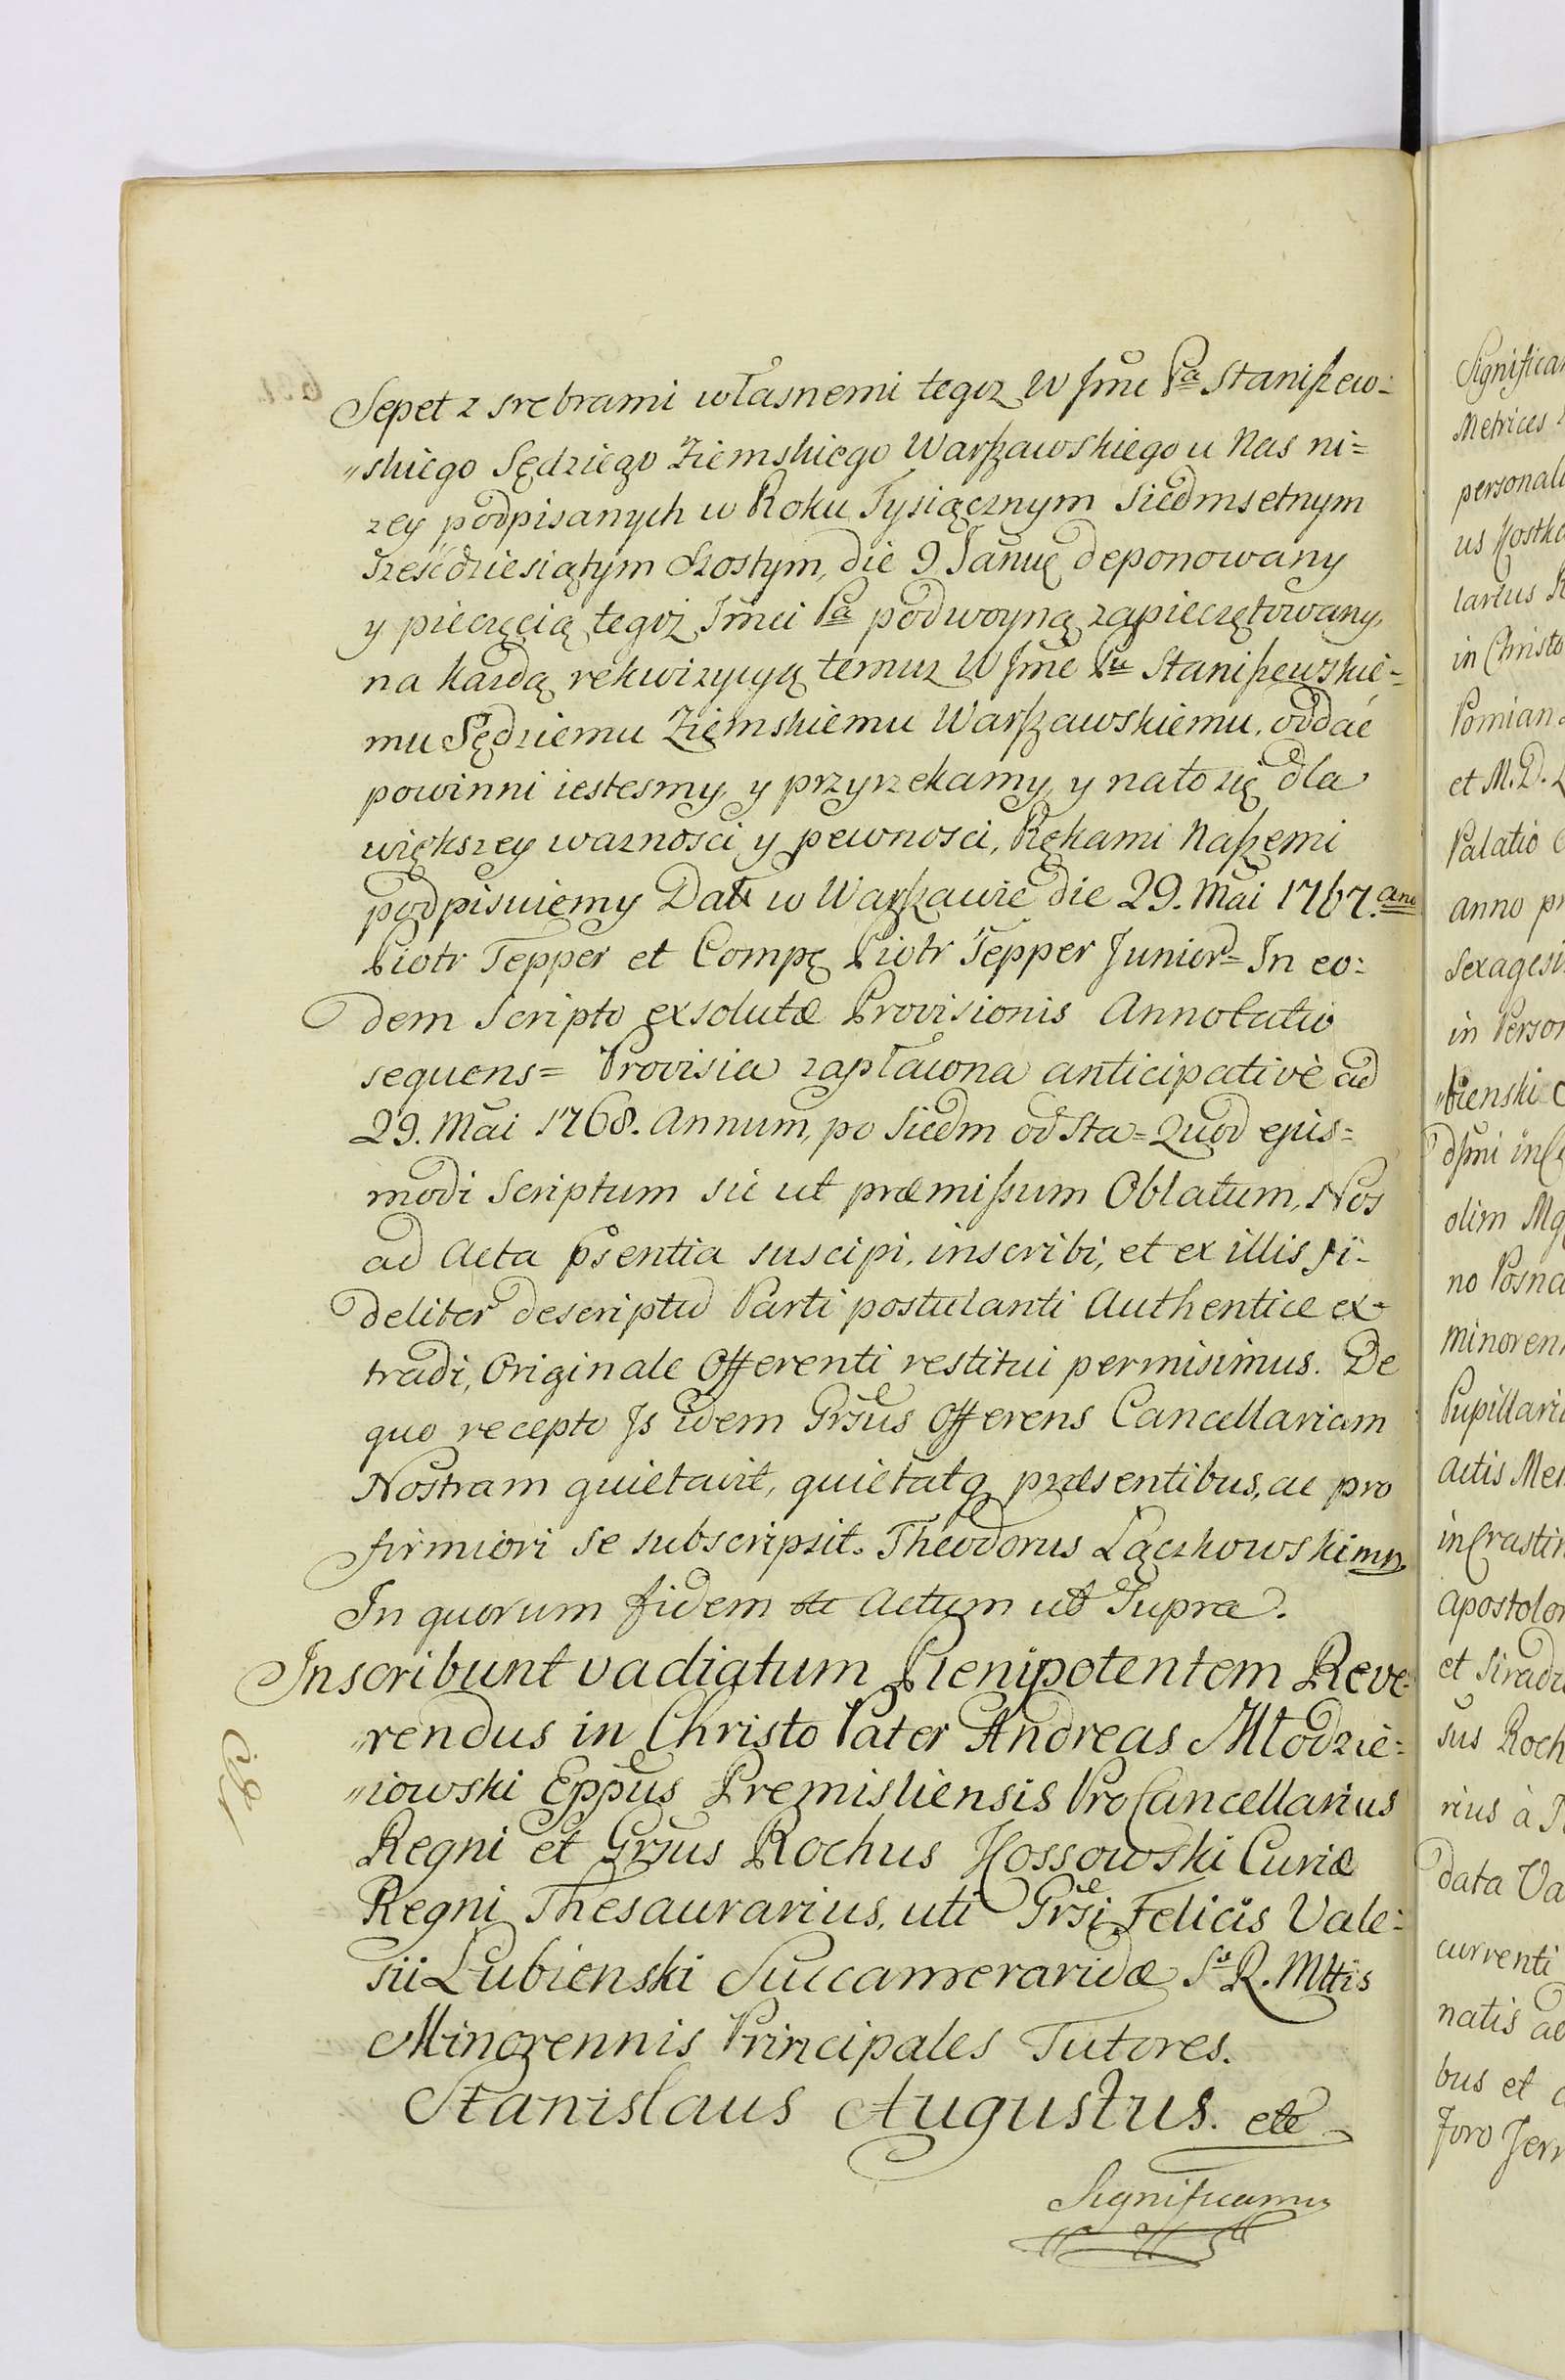 Sepet z srebrami własnemi tegoz W Jmc Pa Staniszew=
„skiego Sędziego Ziemskiego Warszawskiego u Nas ni=
zey podpisanych w Roku Tysiącznym Siedmsetnym
Sześćdziesiątym Szostym, die 9 Januę deponowany
y pieczęcią tegoż Jmci Pa podwoyną zapieczętowany,
na kazdą rekwizycyą temuz W Jmc Pu Staniszewskie=
mu Sędziemu Ziemskiemu Warszawskiemu, oddać
powinni iestesmy, y przyrzekamy, y nato się dla
większey waznosci y pewnosci, Rękami Naszemi
podpisuiemy Datt w Warszawie die 29. Mai 1767. ano
Piotr Tepper et Compę Piotr Tepper Junior= In eo=
dem Scripto exsolutæ Provisionis Annotatio
sequens= Provisia zapłacona anticipativè ad
29. Mai 1768. Annum, po Siedm od Sta= Quod ejus=
modi Scriptum sic ut præmissum Oblatum, Nos
ad Acta psentia suscipi, inscribi, et ex illis fi=
deliter descriptu Parti postulanti Authentice ex=
tradi, Originale Offerenti restitui permisimus. De
quo recepto Is idem Grsus Offerens Cancellariam
Nostram quietavit, quietatq præsentibus, ac pro
firmiori se subscripsit. Theodorus Łączkowski mp.
In quorum fidem etc Actum ut Supra.
Inscribunt vadiatum Plenipotentem Reve=
„rendus in Christo Pater Andreas Młodzie=
„iowski Eppus Premisliensis ProCancellarius
Regni et Grsus Rochus Kossowski Curiæ
Regni Thesaurarius, uti Grsi Felicis Vale=
sii Lubienski Succameraridæ S R. Mttis
Minorennis Principales Tutores.
Stanislaus Augustus. etc
Significamus
Significam
Metrices
personali
us Kostka
larius R
in Christo
Pomian
et M. D.
Palatio
anno pr
Sexagesi
in Person
„bienski
olim Mg
no Posna
minoren
Pupillari
actis Me
in Crastin
Apostolor
et Siradi
sus Roch
rius à
data Va
currenti
natis ac
bus et
Foro